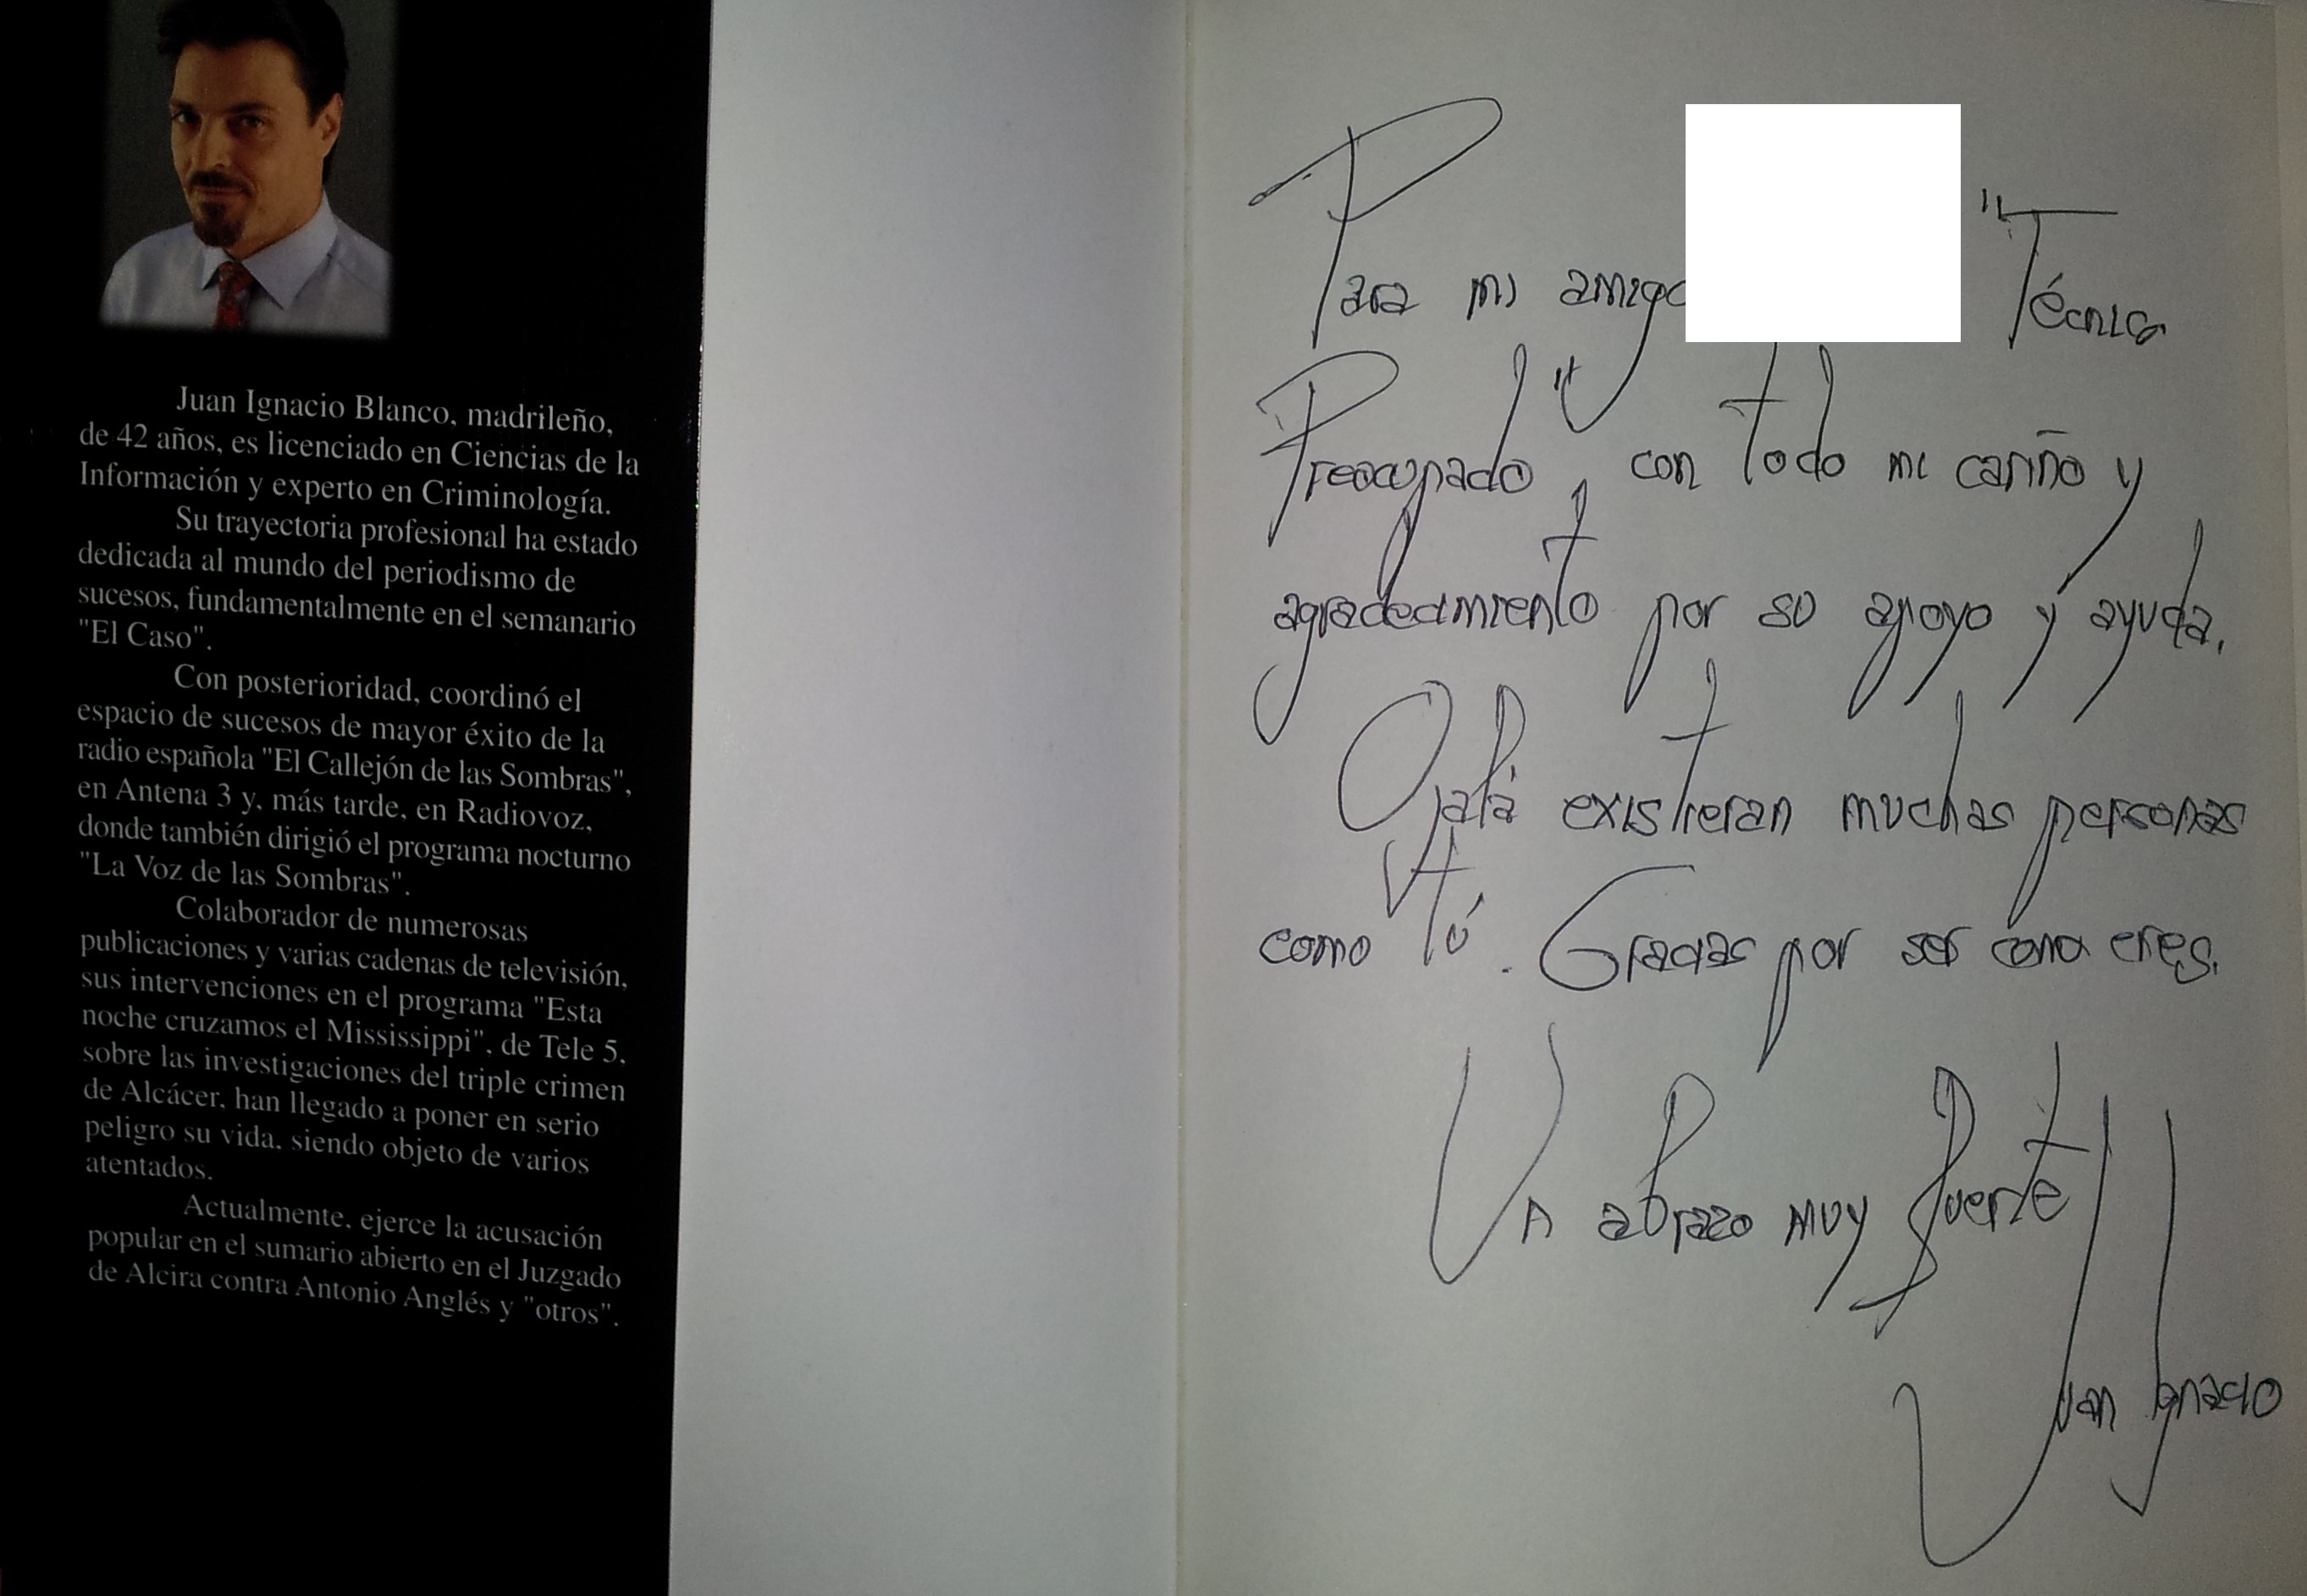 Juan Ignacio Blanco, madrileño,
de 42 años, es licenciado en Ciencias de la
Información y experto en Criminología.
Su trayectoria profesional ha estado
dedicada al mundo del periodismo de
sucesos, fundamentalmente en el semanario
"El Caso".
Con posterioridad, coordinó el
espacio de sucesos de mayor éxito de la
radio española "El Callejón de las Sombras",
en Antena 3 y, más tarde, en Radiovoz,
donde también dirigió el programa nocturno
"La Voz de las Sombras".
Colaborador de numerosas
publicaciones y varias cadenas de televisión,
sus intervenciones en el programa "Esta
noche cruzamos el Mississippi", de Tele 5,
sobre las investigaciones del triple crimen
de Alcácer, han llegado a poner en serio
peligro su vida, siendo objeto de varios
atentados.
Actualmente, ejerce la acusación
popular en el sumario abierto en el Juzgado
de Alcira contra Antonio Anglés y "otros".
Para mi amigo "Técnico
Preocupado", con todo mi cariño y
agradecimiento por su apoyo y ayuda.
Ojalá existieran muchas personas
como tú. Gracias por ser como eres.
Un abrazo muy fuerte
Juan Ignacio